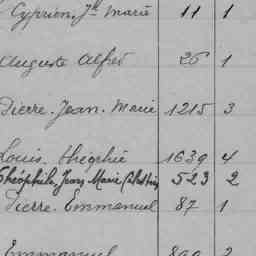 Cyprien, Jh Marie 11 1
Auguste Alfred 26 1
Pierre. Jean. Marie 1215 3
Louis. 1639 4
Théophile, Jean Marie Célestin 523 2
Pierre. Emmanuel 87 1
Emmanuel 2